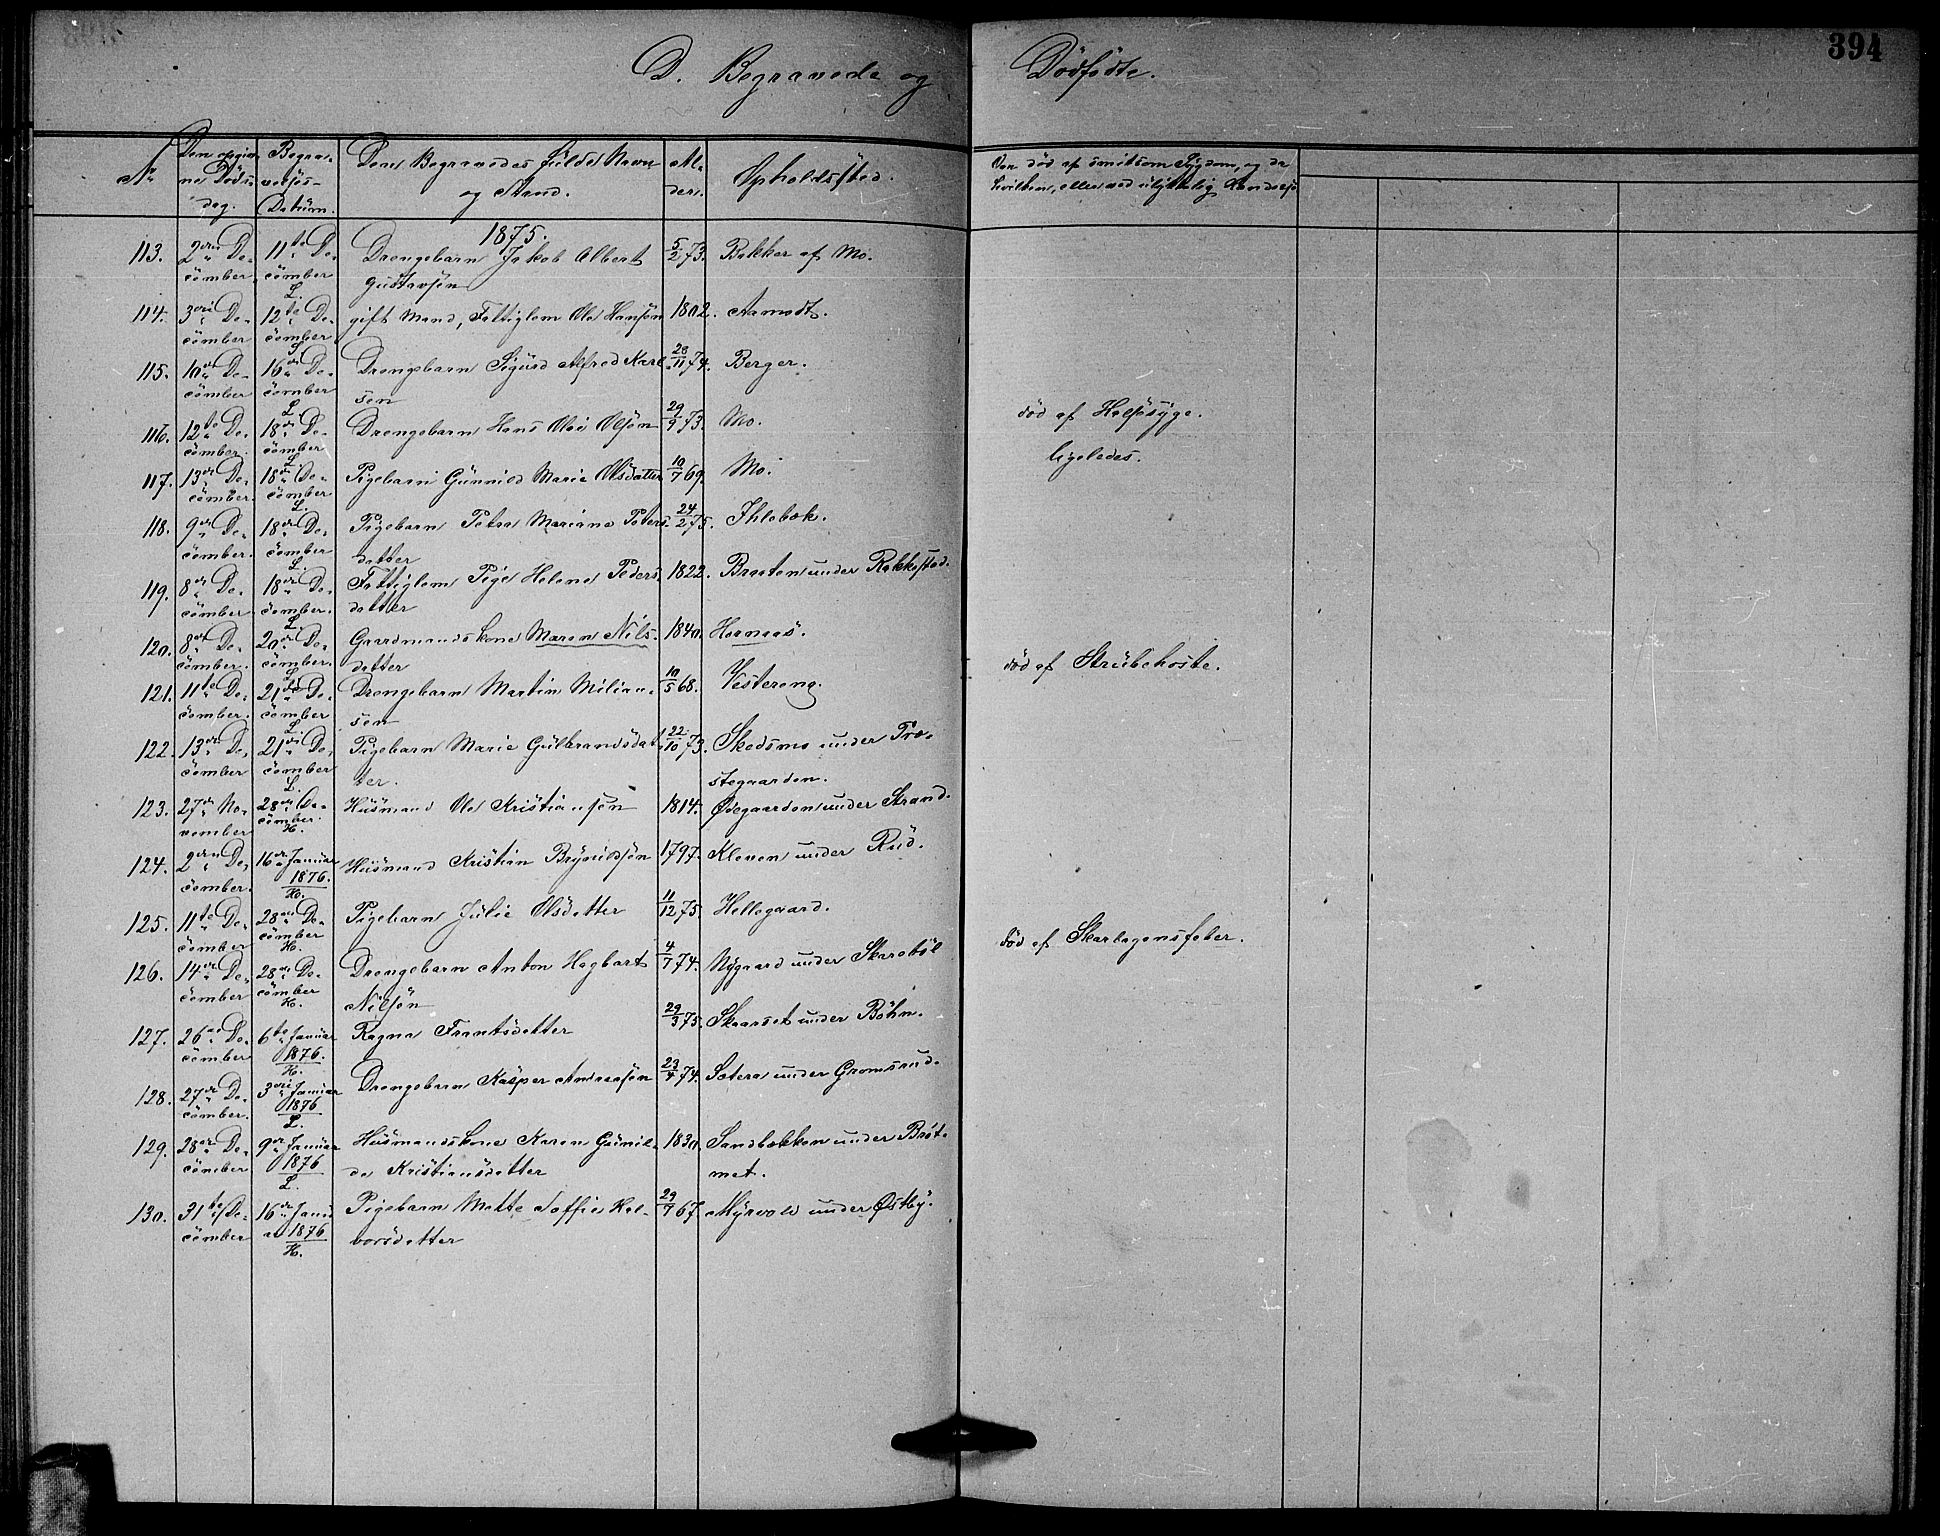 394
D. Begravede og Dödfödte.
No
Den opgivne Dödsdag.
Begravelses-Datum.
Dens Begravedes fulde Navn og Stand.
Alder.
Opholdssted.
Om död af smitsom Sygdom, og da hvilken, eller ved ulykkelig Hændelse
1875.
113. 2den December 11te December L. Drengebarn Jakob Albert Gustavsön 5/2 73. Bakker af Mo.
114. 3die December 12te December S. gift Mand, Fattiglem Ole Hansön 1802. Aamodt.
115. 10de December 16de December L. Drengebarn Sigurd Alfred Karlsen 28/11 74. Berger.
116. 12te December. 18de December L. Drengebarn Hans Olai Olsön 29/9 73. Mo. död af Halssyge.
117. 13de December. 18de December L. Pigebarn Gunnild Marie Olsdatter 10/7 69. Mo. ligeledes.
118. 9de December. 18de December L. Pigebarn Petra Mariane Petersdatter 24/2 75. Ihlebæk.
119. 8de December 18de December. L. Fattiglem Pige Helene Pedersdatter 1822. Braaten under Rakkestad.
120. 8de December. 20de December. L. Gaardmandskone Maren Nilsdatter 1840. Hornæs.
121. 11te December. 21de December L. Drengebarn Martin Miliansen 10/5 68. Vestereng. död af Strubehoste.
122. 13de December 21de December L. Pigebarn Marie Gulbrandsdatter. 22/10 73. Skedsmo under Præstegaarden.
123. 27de November 28de December. H. Husmand Ole Kristiansen 1814. Ödegaarden under Strand.
124. 2den December. 16de Januar 1876. H. Husmand Kristian Brynildsön 1797. Kleven under Rud.
125. 11te December 28de December H. Pigebarn Julie Olsdatter 11/12 75. Hellegaard.
126. 14de December 28de December H. Drengebarn Anton Hagbart Nilsön 4/7 74. Nygaard under Skarebøl död af Skarlagensfeber.
127. 26de December 6te Januar 1876. H. Ragna Frantsdatter 29/3 75. Skaaret under Böhn.
128. 27de December. 3die Januar 1876 L. Drengebarn Kasper Andreasön 23/4 74. Sætera under Gromsrud.
129. 28de December 9de Januar 1876 L. Husmandskone Karen Gunilde Kristiansdatter 1830. Sandbækken under Bröt-met.
130. 31te December 16de Januar 1876 H. Pigebarn Mette Soffie Halvorsdatter 29/9 67. Myrvold under Østby.